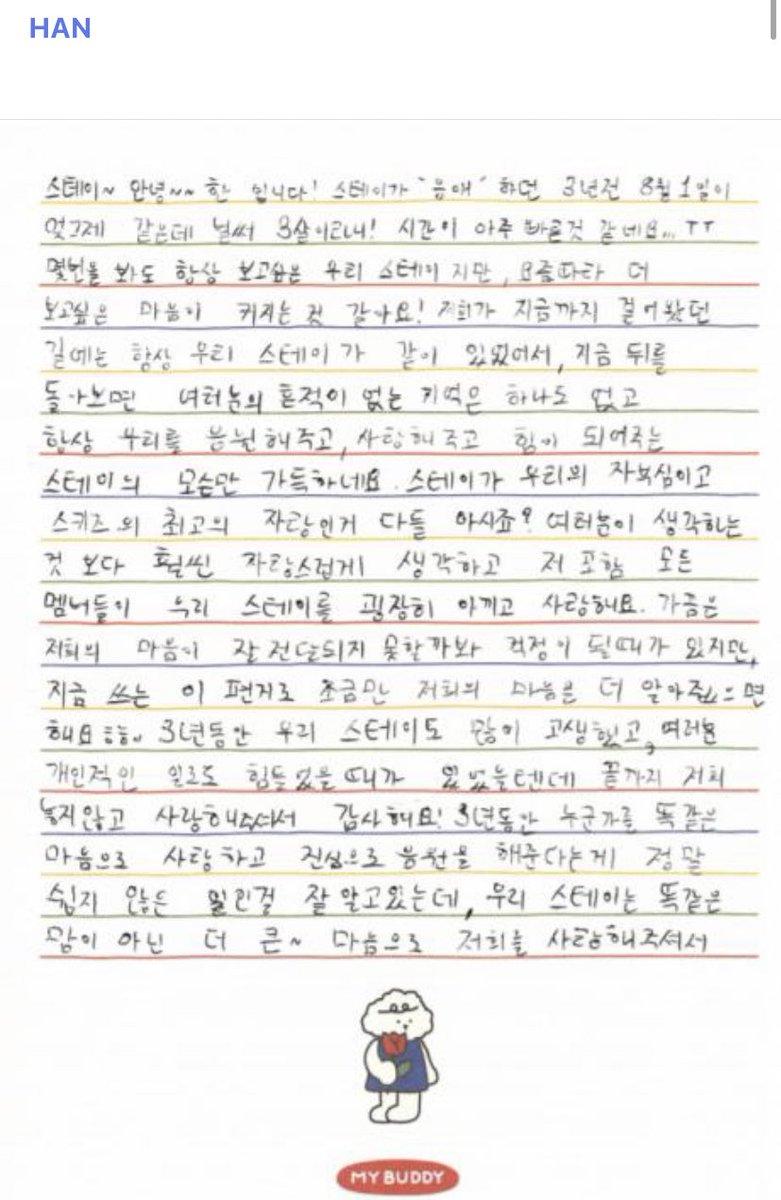 HAN
스테이~ 안녕~~ 한 입니다! 스테이가 "응애" 하던 3년전 8월 1일이
엊그제 같은데 벌써 3살이라니! 시간이 아주 빠른것 같네요... ㅠㅠ
몇번을 봐도 항상 보고싶은 우리 스테이 지만, 요즘따라 더
보고싶은 마음이 커지는 것 같아요! 저희가 지금까지 걸어왔던
길에는 항상 우리 스테이가 같이 있었어서, 지금 뒤를
돌아보면 여러분의 흔적이 없는 기억은 하나도 없고
항상 우리를 응원해주고, 사랑해주고 힘이 되어주는
스테이의 모습만 가득하네요. 스테이가 우리의 자부심이고
스키즈의 최고의 자랑인거 다들 아시죠? 여러분이 생각하는
것 보다 훨씬 자랑스럽게 생각하고 저 포함 모든
멤버들이 우리 스테이를 굉장히 아끼고 사랑해요. 가끔은
저희의 마음이 잘 전달되지 못할까봐 걱정이 될때가 있지만,
지금 쓰는 이 편지로 조금만 저희의 마음을 더 알아주셨으면
해요 ㅎㅎ. 3년동안 우리 스테이도 많이 고생했고, 여러분
개인적인 일로도 힘들었을 때가 있었을텐데 끝까지 저희
놓지않고 사랑해주셔서 감사해요! 3년동안 누군가를 똑같은
마음으로 사랑하고 진심으로 응원을 해준다는게 정말
쉽지 않은 일인걸 잘 알고있는데, 우리 스테이는 똑같은
맘이 아닌 더 큰~ 마음으로 저희를 사랑해주셔서
MY BUDDY